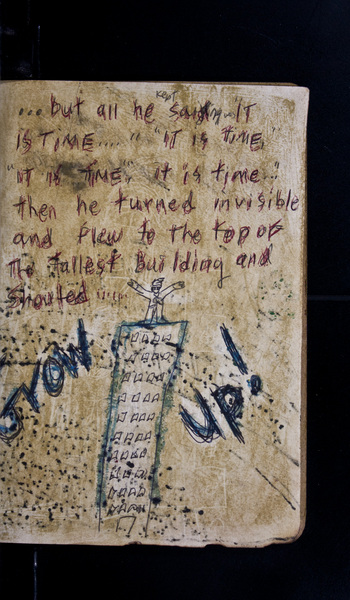 ...but all he kept said... IT
IS TIME.... "IT IS TIME,"
"IT IS TIME," it is time..."
then he turned invisible
and flew to the top of
the tallest building and
shouted .....
GROW UP!